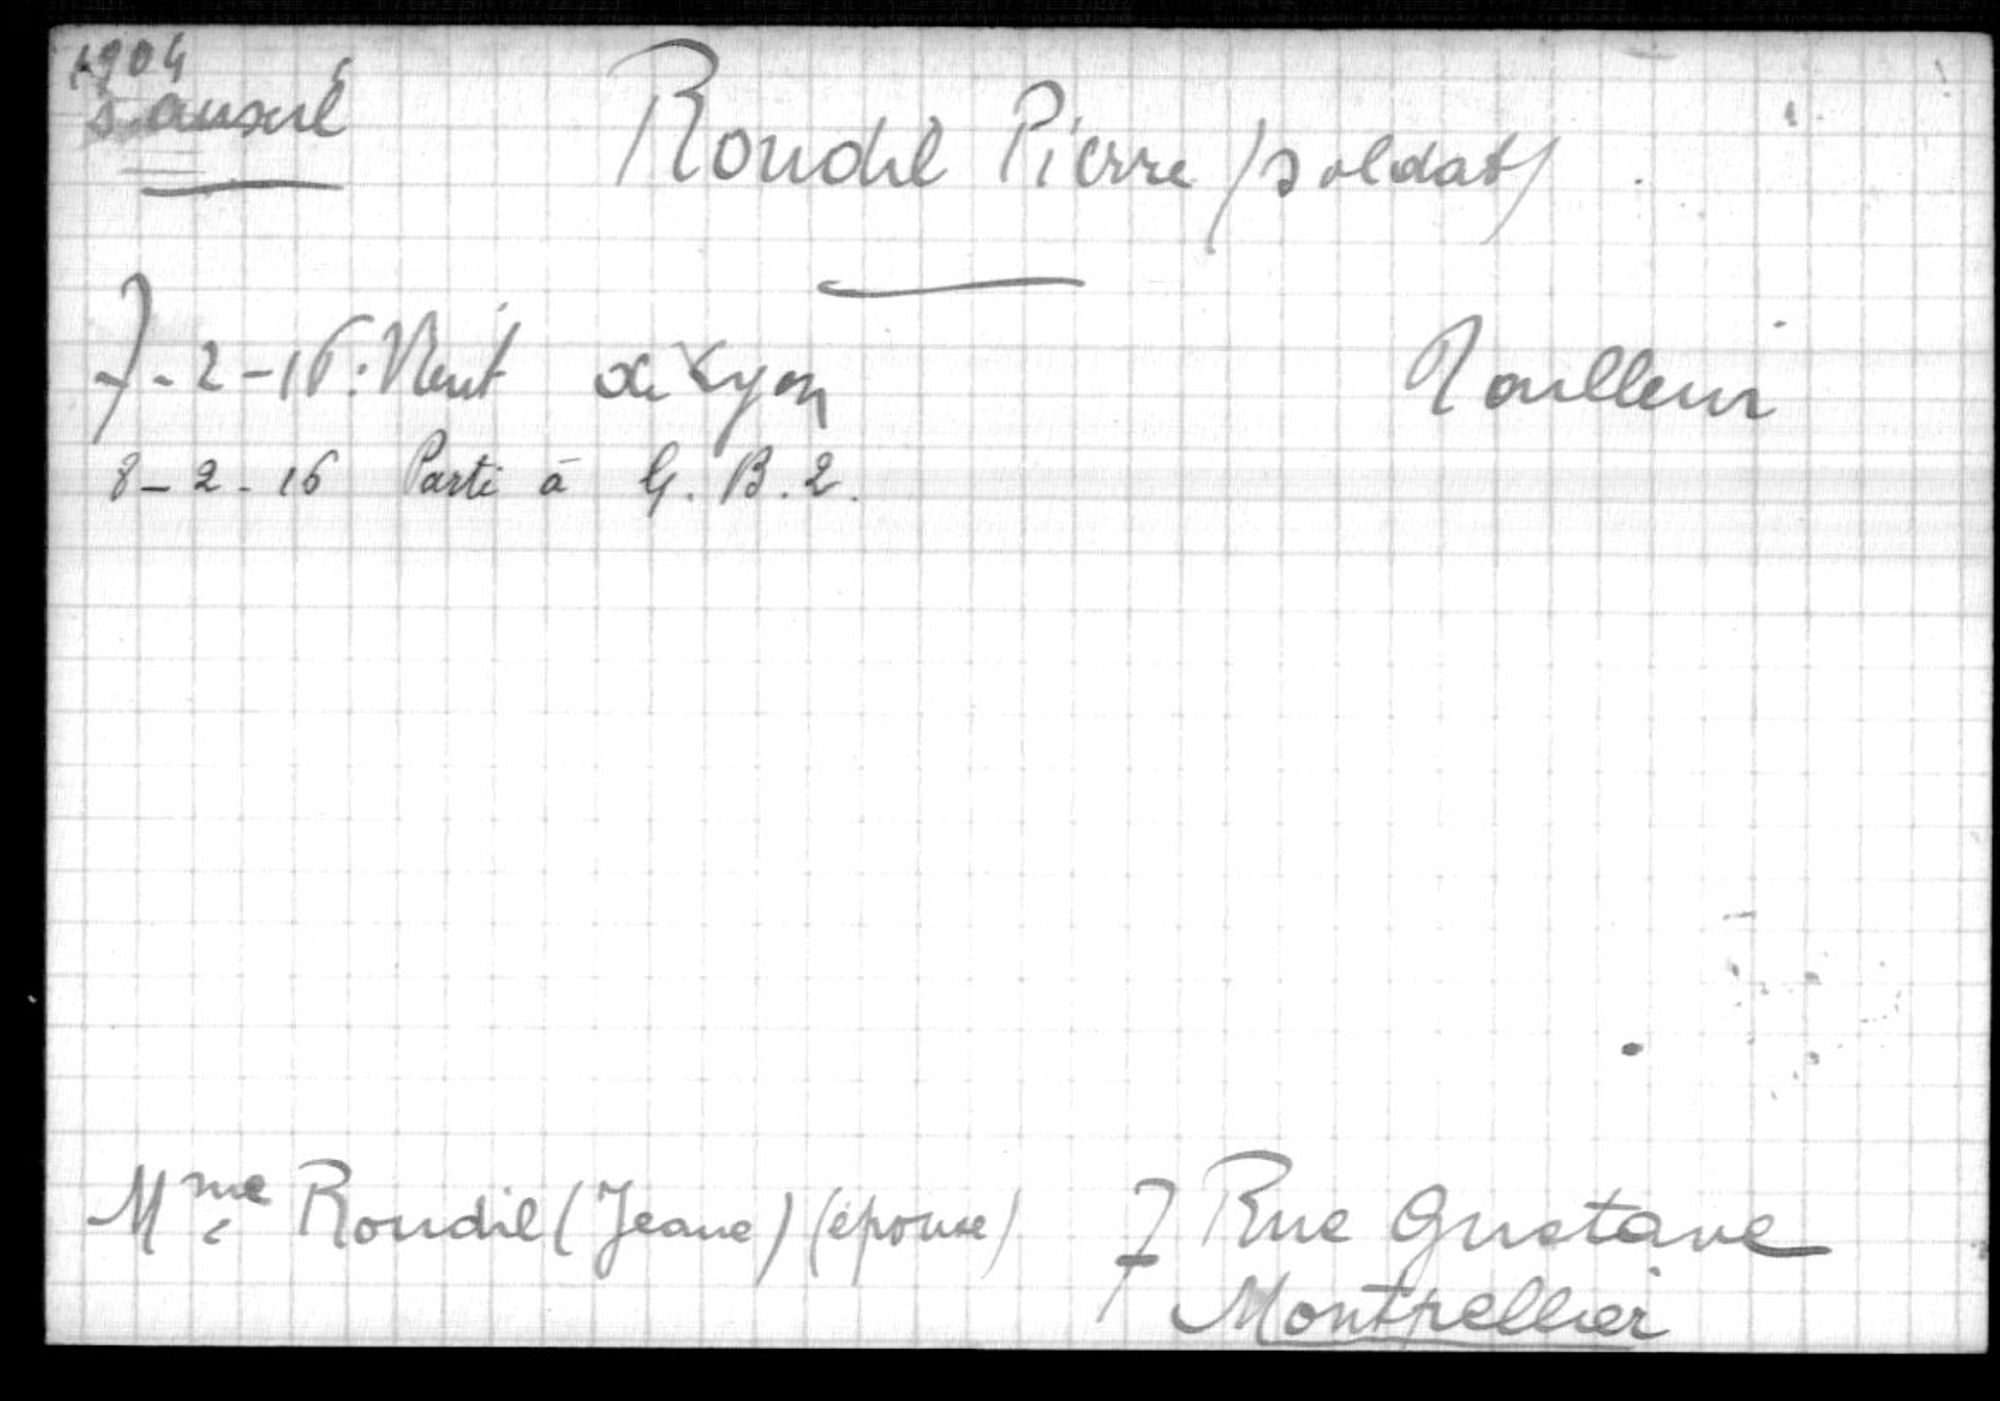 1904
s. auxil
Roudil Pierre (soldat)
7-2-16: Vient de Lyon
8-2-16 Parti à G.B.2.
Mme Roudil (Jeane) (épouse) 7 Rue Gustave
Montpellier